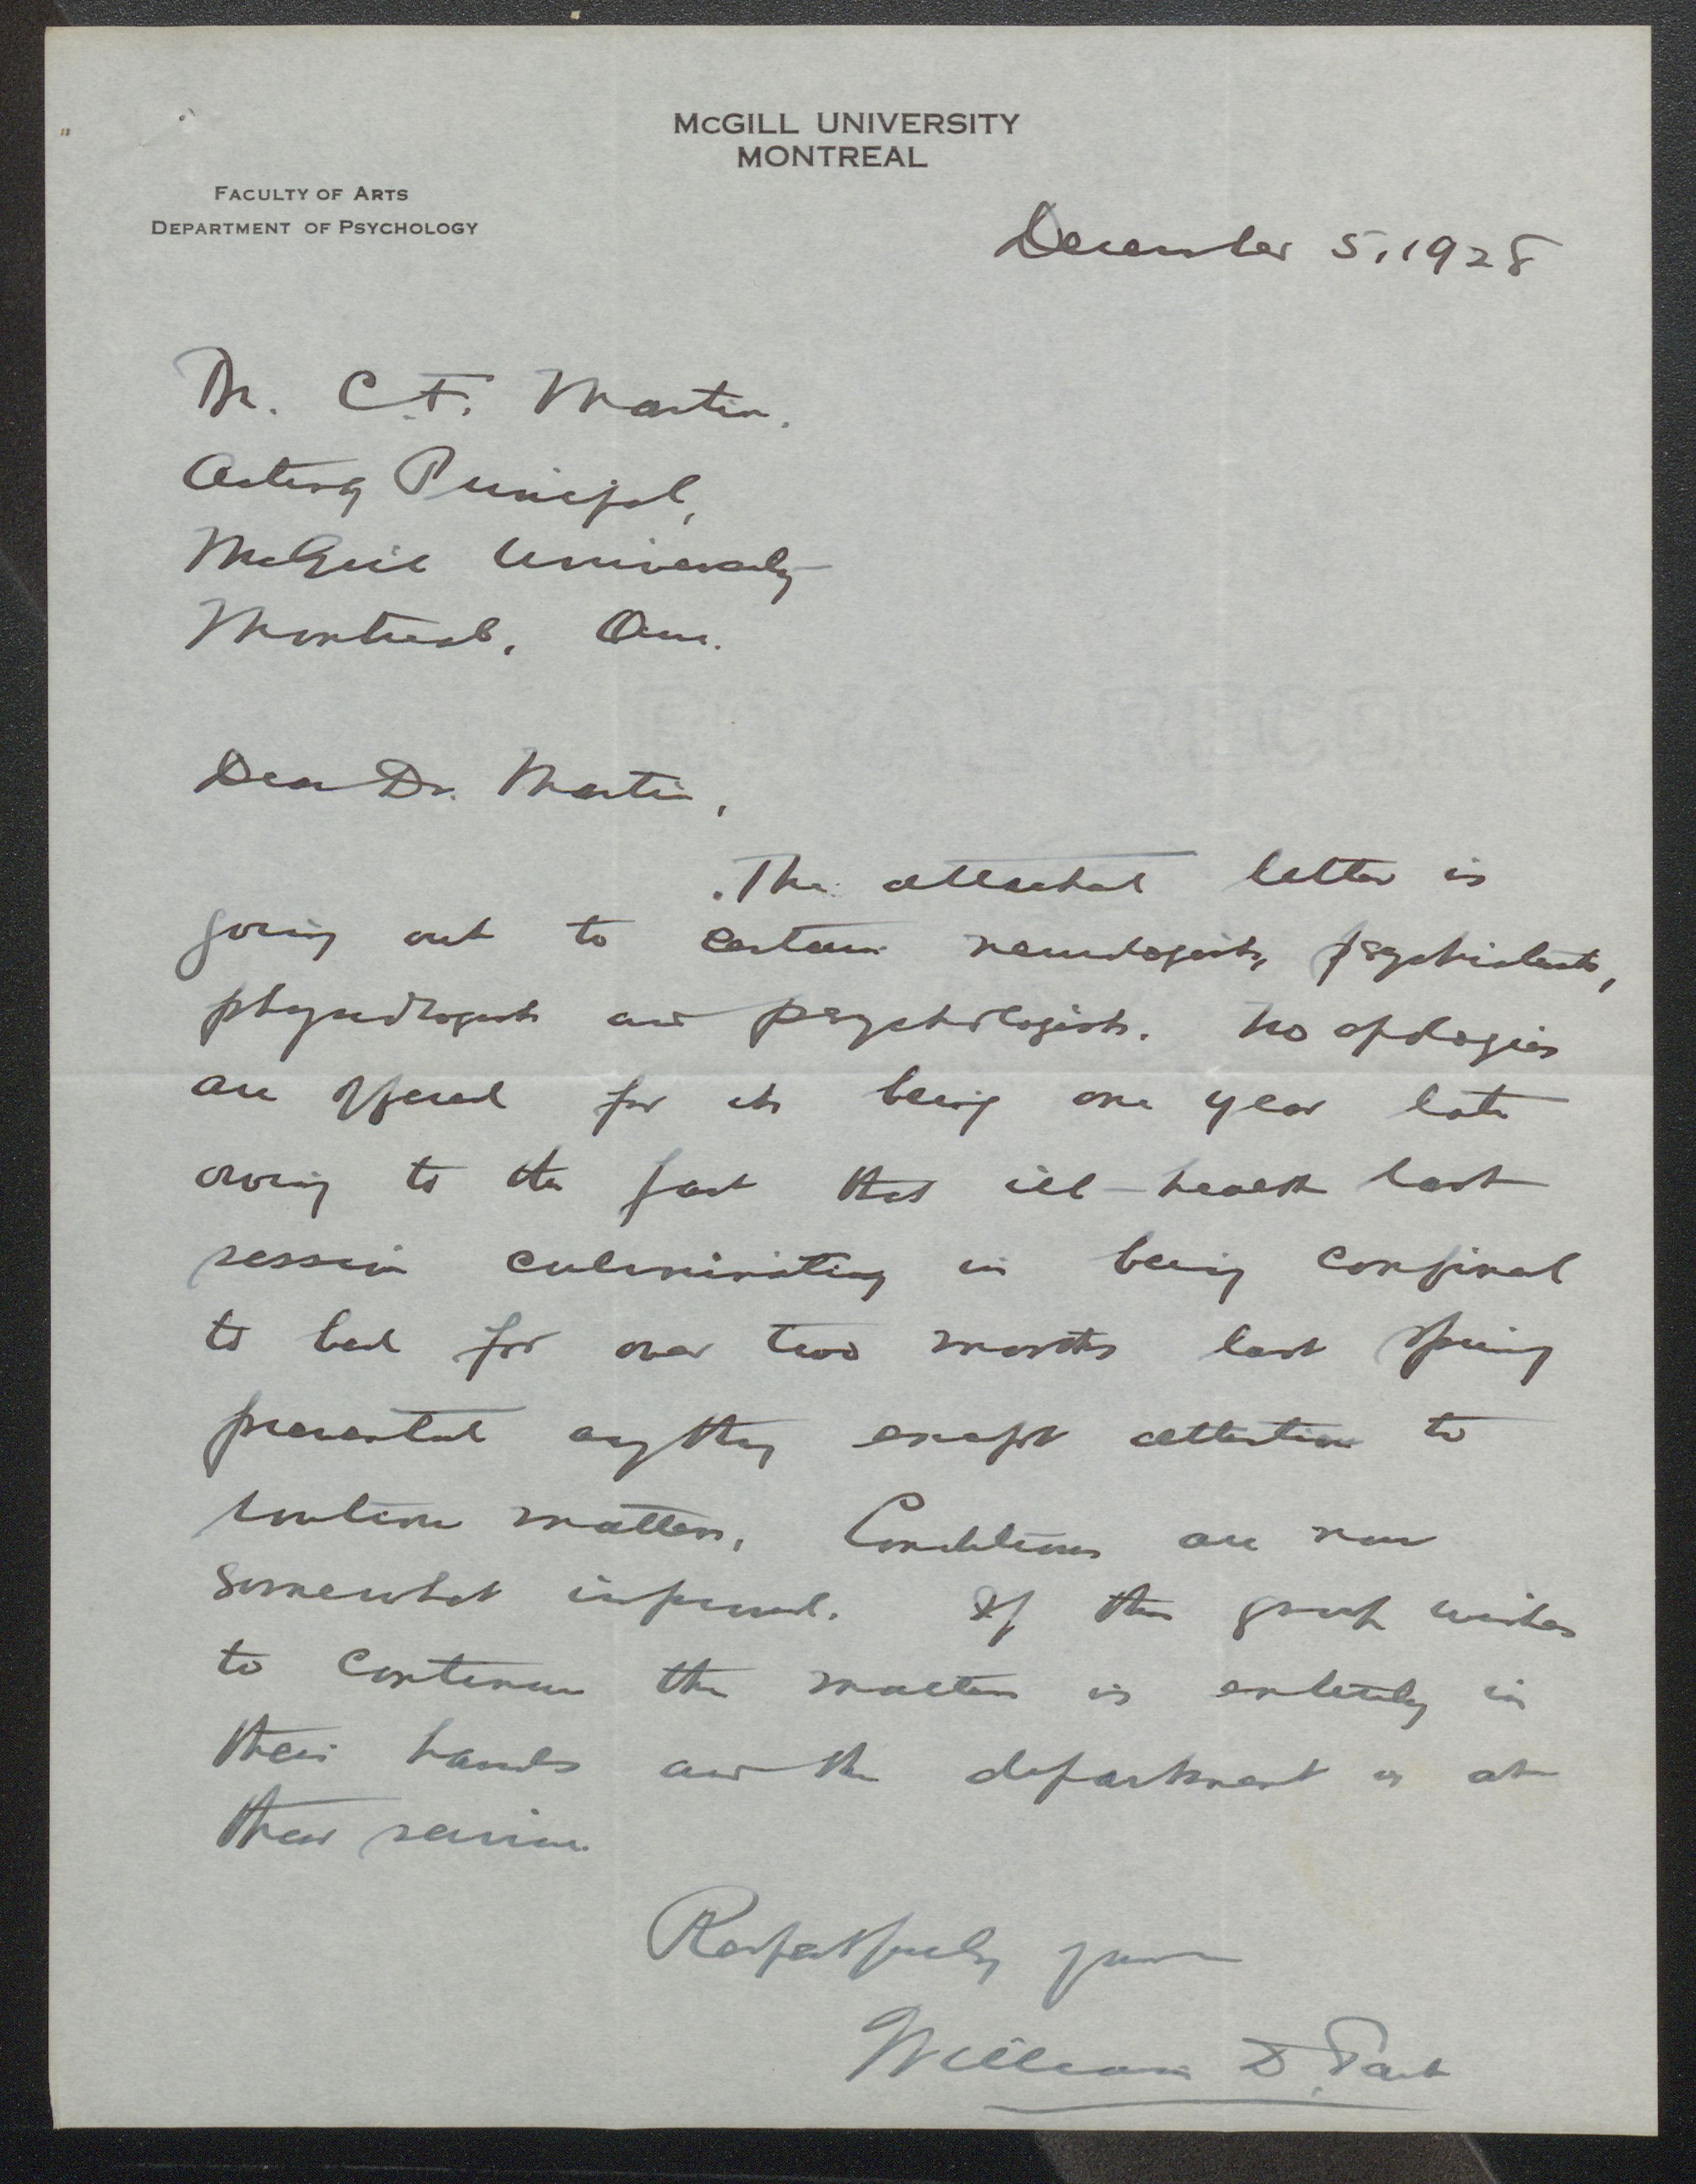 McGILL UNIVERSITY
MONTREAL
FACULTY OF ARTS
DEPARTMENT OF PSYCHOLOGY
December 5, 1928
Dr. C.F. Martin,
Acting Principal,
McGill University
Montreal, Que.
Dear Dr. Martin,
The attached letter is
going out to certain neurologists, psychiatrists,
physiologists and psychologists. No apologies
are offered for its being one year late
owing to the fact that ill-health last
session culminating in being confined
to bed for over two months last spring
prevented anything except attention to
routine matters. Conditions are now
somewhat improved. If the group wishes
to continue the matter is entirely in
their hands and the department is at
their service.
Respectfully yours
William D. Tait